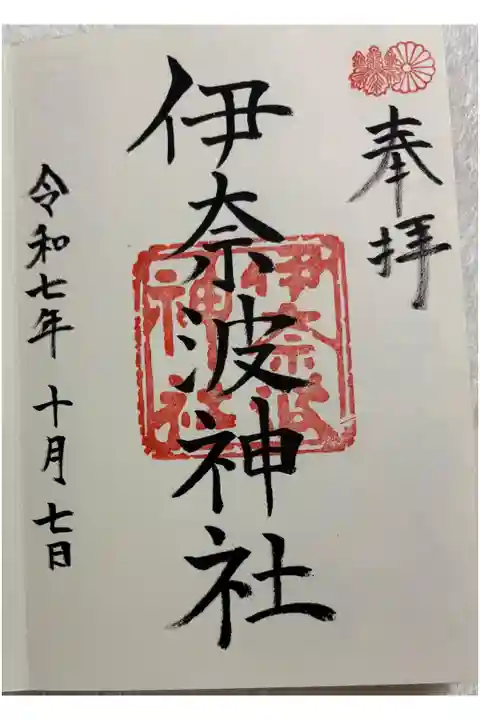 奉拝
伊奈波神社
伊奈波
神社
令和七年 十月 七日